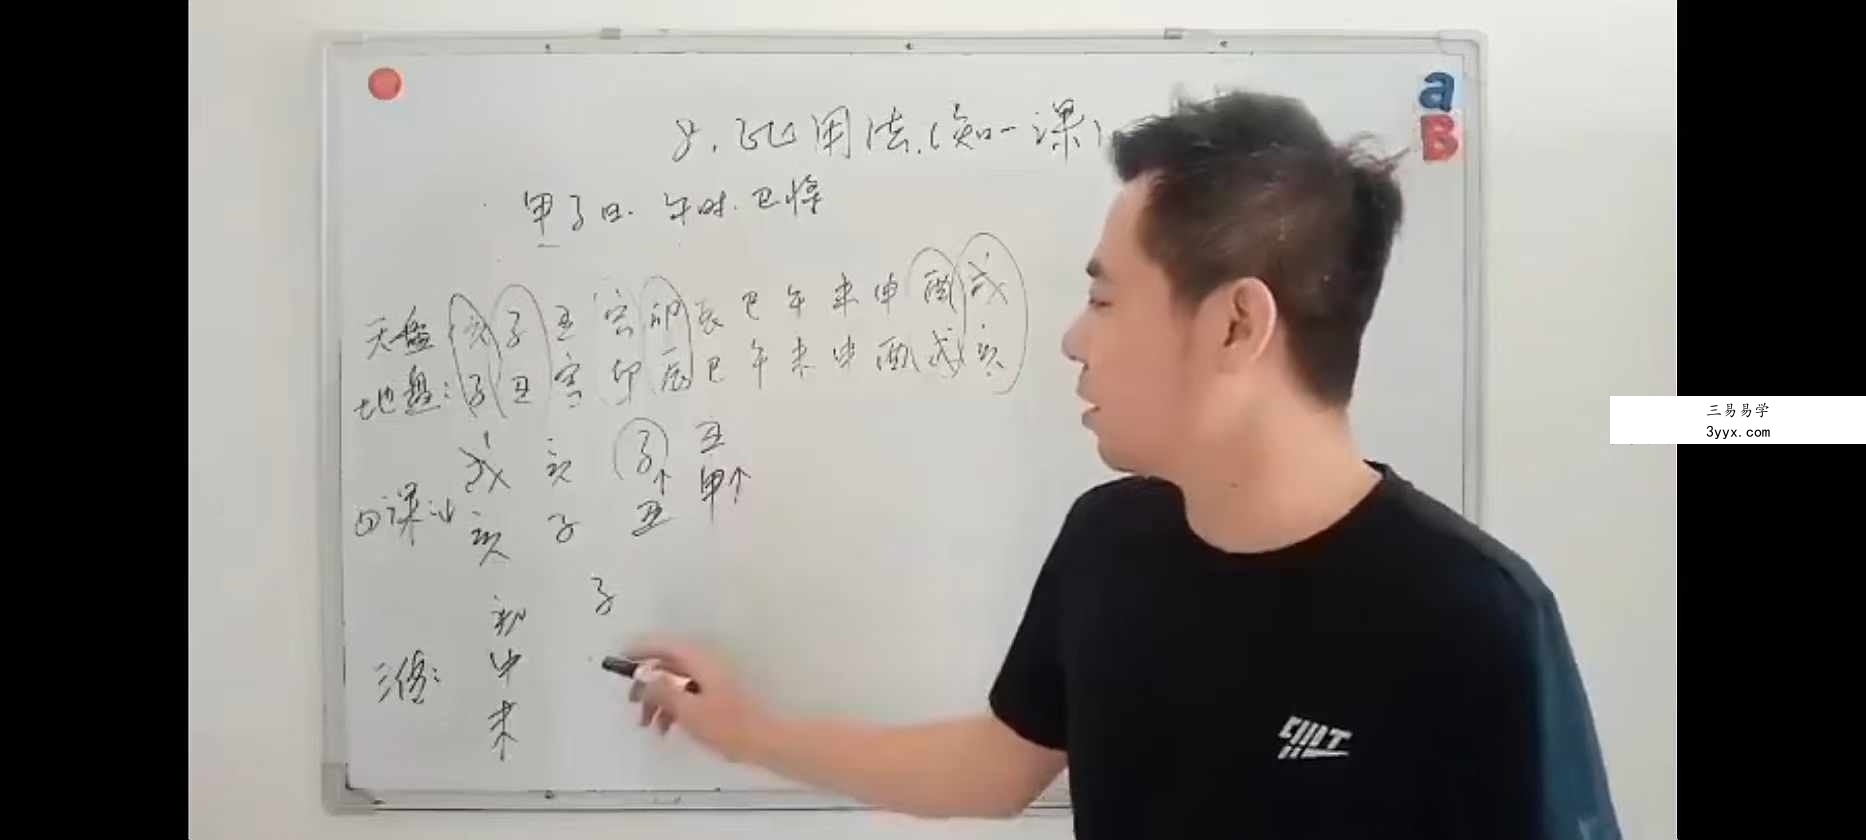 8.比用法.(知一课)
甲子日.午时.巳将
天盘 亥子丑寅卯辰巳午未申酉戌
地盘:子丑寅卯辰巳午未申酉戌亥
戌 亥 子 丑
四课:亥 子 丑 甲
初 子
三传:中
末
a
B
三易易学
3yyx.com